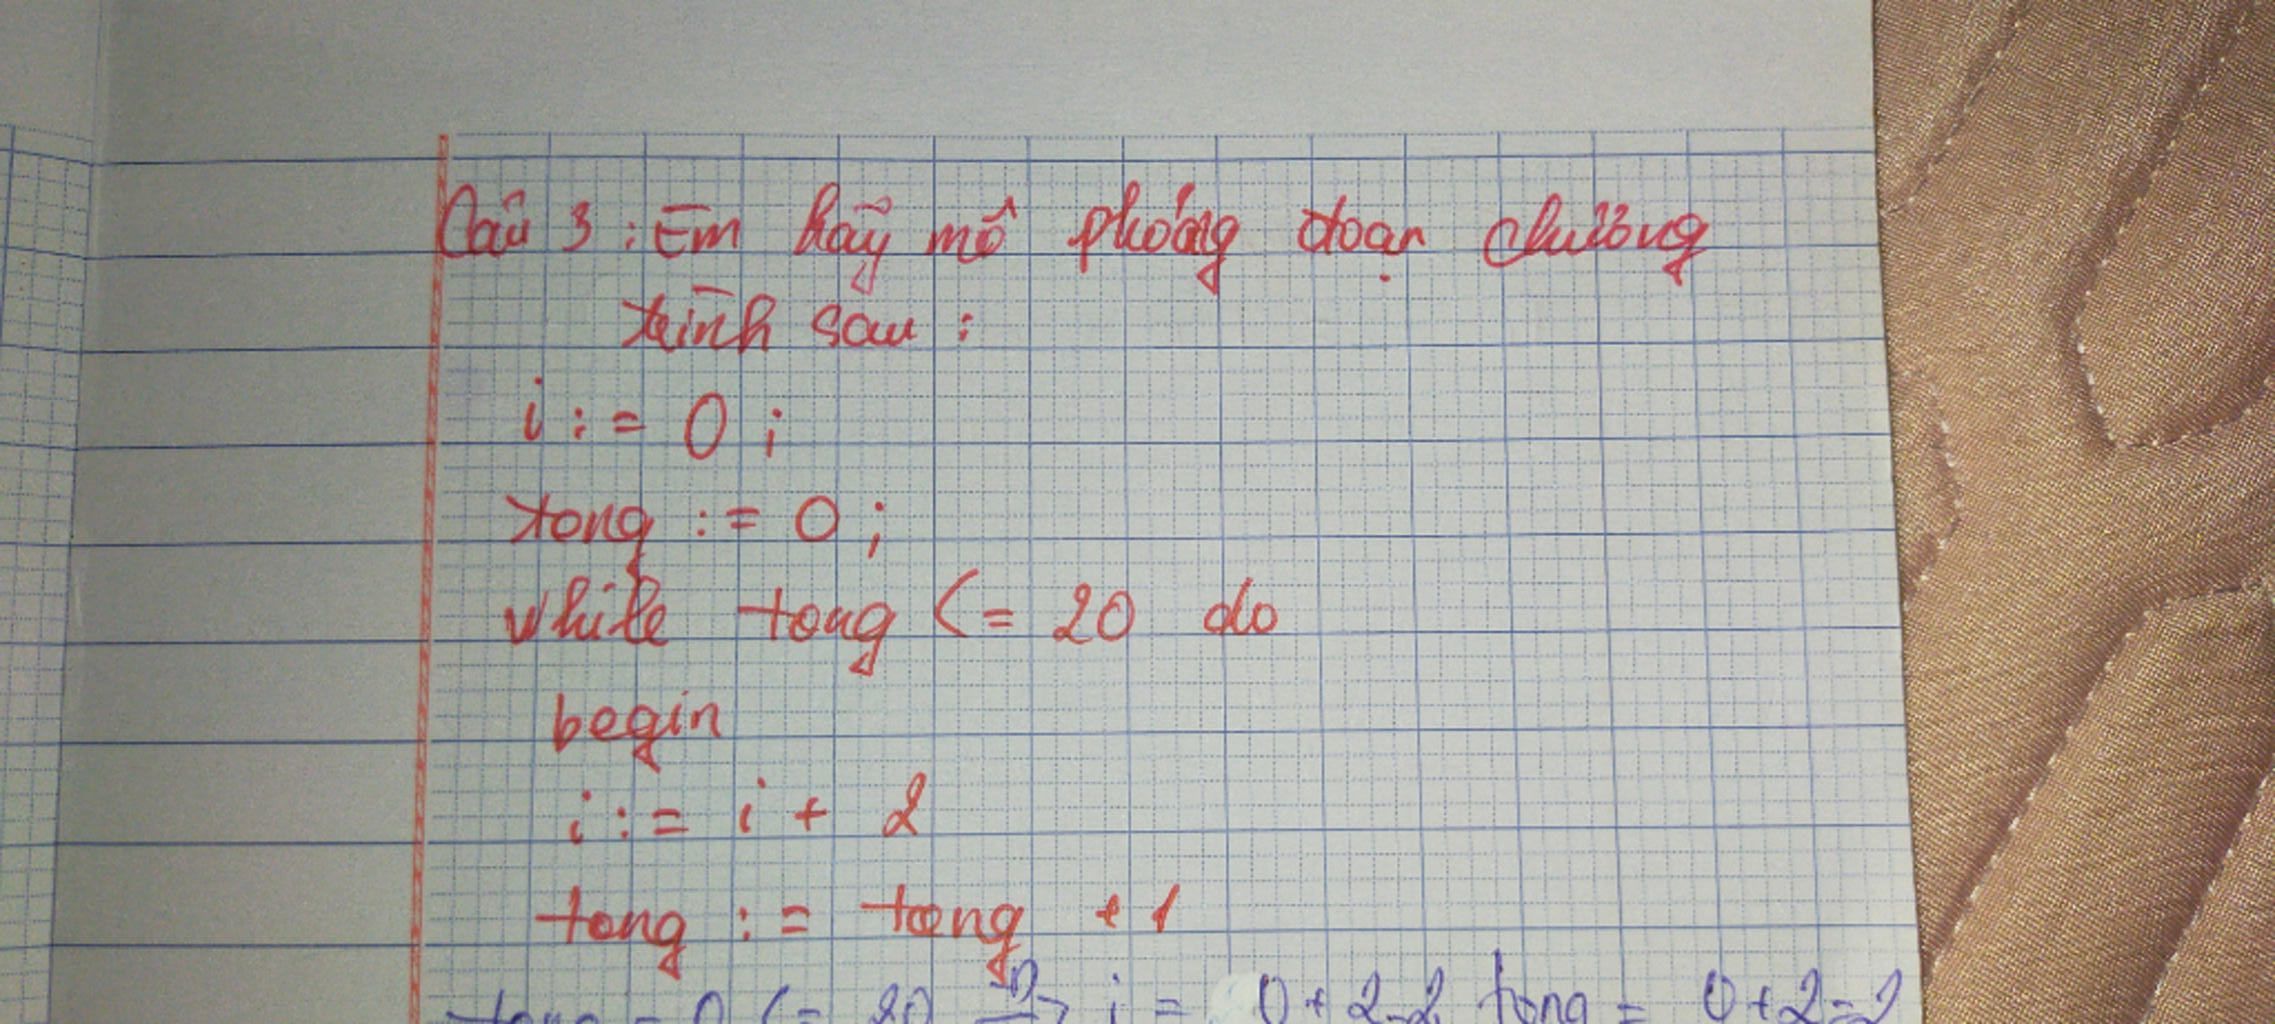 Câu 3 : Em hãy mô phỏng đoạn chương
trình sau :
i := 0 ;
tong := 0 ;
while tong <= 20 do
begin
i := i + 2
tong := tong + 1
tong = 0 <= 20 Đ→ i = 0 + 2 = 2 tong = 0 + 2 = 2